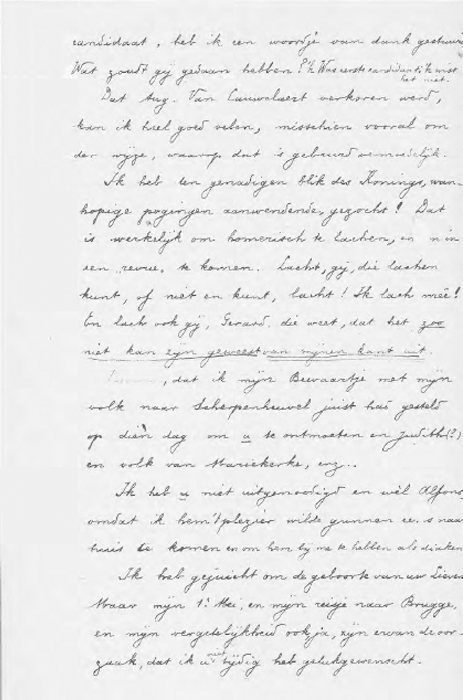 candidaat, heb ik een woordje van dank gestuurd
Wat zoudt gij gedaan hebben? 'k Was eerste candidaat, ik wist
het niet.
Dat Aug. Van Cauwelaert verkoren werd,
kan ik heel goed velen, misschien vooral om
der wijze, waarop dat is gebeurd vermoedelijk.
Ik heb een genadigen blik des Konings, wan-
hopige pogingen aanwendende, gezocht! Dat
is werkelijk om homerisch te lachen, en in
een revue te komen. Lacht, gij, die lachen
kunt, of niet en kunt, lacht! Ik lach mêe!
En lach ook gij, Gerard, die weet, dat het zoo
niet kan zijn geweest van mijnen kant uit.
, dat ik mijn Bewaartje met mijn
volk naar Scherpenheuvel juist had gesteld
op dien dag om u te ontmoeten en Judith(?)
en volk van Mariekerke, enz..
Ik heb u niet uitgenoodigd en wèl Alfons,
omdat ik hem 't plezier wilde gunnen eens naar
huis te komen en om hem bij me te hebben als diaken
Ik heb gejuicht om de geboorte van uw Lieven
Maar mijn 1e Mei, en mijn reisje naar Brugge,
en mijn vergetelijkheid ook, ja, zijn ervan de oor-
zaak, dat ik u niet tijdig heb gelukgewenscht.